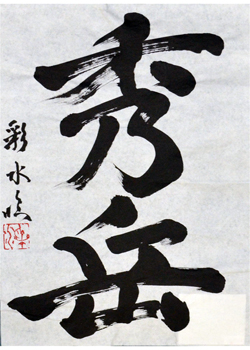 秀岳
彩水